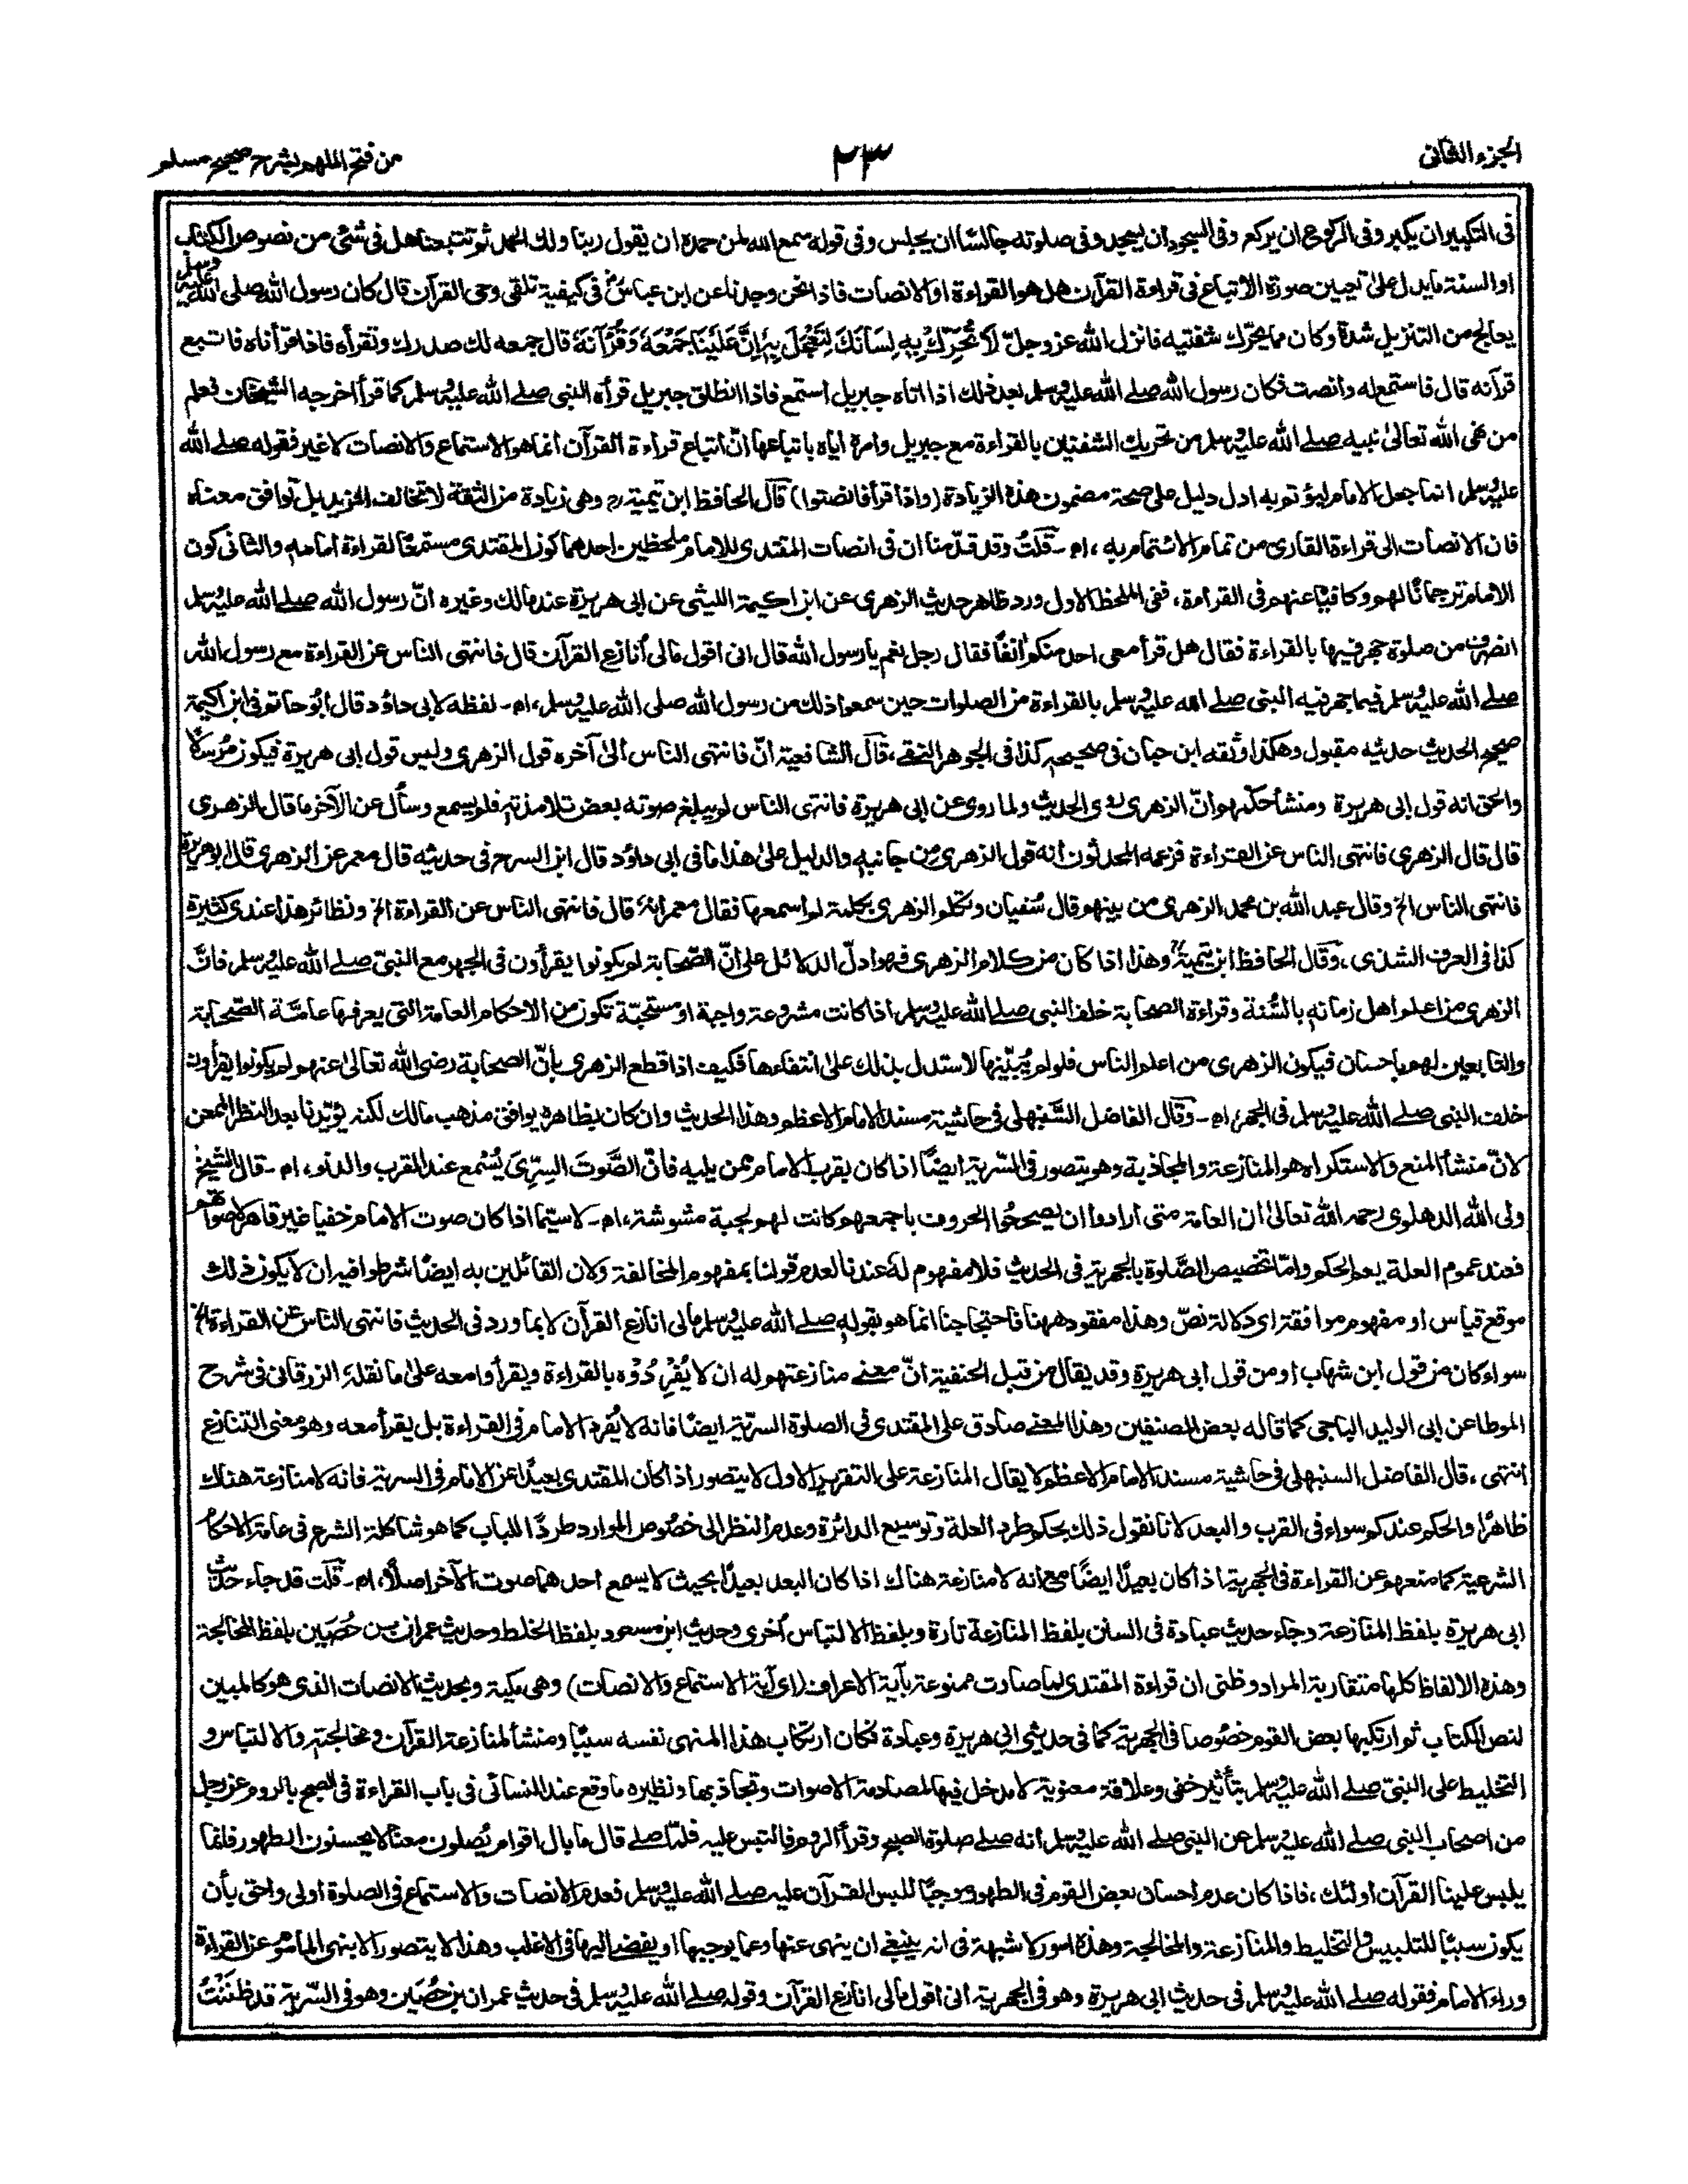 الجزء الثاني ٢٣ من فتح الملهم بشرح صحيح مسلم
فى التكبير ان يكبر وفى الركوع ان يركع وفى السجود ان يسجد وفى صلوته جالسًا ان يجلس وفى قوله سمع الله لمن حمده ان يقول ربنا ولك الحمد ثم تتبعنا هل فى شئ من نصوص الكتاب
او السنة ما يدل على تعيين صورة الاتباع فى قراءة القرآن هل هو القراءة او الانصات فاذا نحن وجدنا عن ابن عباسؓ فى كيفية تلقى وحى القرآن قال كان رسول الله صلى الله عليه وسلم
يعالج من التنزيل شدة وكان مما يحرّك شفتيه فانزل الله عزوجلّ لَا تُحَرِّكْ بِهٖ لِسَانَكَ لِتَعْجَلَ بِهٖ اِنَّ عَلَيْنَا جَمْعَهٗ وَقُرْاٰنَهٗ قال جمعه لك صدرك وتقرأه فاذا قرأناه فاتبع
قرآنه قال فاستمع له وأنصت فكان رسول الله صلے الله عليه وسلم بعد ذلك اذا اتاه جبريل استمع فاذا انطلق جبريل قرأه النبى صلے الله عليه وسلم كما قرأ اخرجه الشيخان فعلم
من نهى الله تعالىٰ نبيه صلے الله عليه وسلم من تحريك الشفتين بالقراءة مع جبريل وامره اياه باتباعها انّ اتباع قراءة القرآن انما هو الاستماع والانصات لا غير فقوله صلے الله
عليه وسلم انما جعل الامام ليؤتم به ادل دليل على صحة مضمون هذه الزيادة (واذا قرأ فانصتوا) قال الحافظ ابن تيمية رح وهى زيادة من الثقة لا تخالف المزيد بل توافق معناه
فان الانصات الى قراءة القارى من تمام الائتمام به ، اه - قلت وقد قدّمنا ان فى انصات المقتدى للامام ملحظين احدهما كون المقتدى مستمعًا لقراءة امامه والثانى كون
الامام ترجمانًا لهم وكافيًا عنهم فى القراءة ، ففى الملحظ الاول ورد ظاهر حديث الزهرى عن ابن اكيمة الليثى عن ابى هريرة عند مالك وغيره انّ رسول الله صلے الله عليه وسلم
انصرف من صلوة جهر فيها بالقراءة فقال هل قرأ معى احد منكم اٰنفًا فقال رجل نعم يا رسول الله قال انى اقول مالى أنازع القرآن قال فانتهى الناس عن القراءة مع رسول الله
صلے الله عليه وسلم فيما جهر فيه النبى صلے الله عليه وسلم بالقراءة من الصلوات حين سمعوا ذلك من رسول الله صلى الله عليه وسلم ، اه - لفظه لابى داؤد قال أبو حاتم فى ابن اكيمة
صحيح الحديث حديثه مقبول وهكذا وثقه ابن حبان فى صحيحه كذا فى الجوهر النقى ، قال الشافعية انّ فانتهى الناس الىٰ آخره قول الزهرى وليس قول ابى هريرة فيكون مرسلًا
والحق انه قول ابى هريرة ومنشأ حكمهم انّ الزهرى روى الحديث ولما روى عن ابى هريرة فانتهى الناس لم يبلغ صوته بعض تلامذته فلم يسمع وسأل عن الآخر ما قال الزهرى
قال قال الزهرى فانتهى الناس عن القراءة فزعمه المحدثون انه قول الزهرى من جانبه والدليل علىٰ هذا ما فى ابى داؤد قال ابن السرح فى حديثه قال معمر عن الزهرى قال ابو هريرة
فانتهى الناس الخ وقال عبد الله بن محمد الزهرى من بينهم قال سُفيان وتكلم الزهرى بكلمة لم اسمعها فقال معمر انهٗ قال فانتهى الناس عن القراءة الخ ونظائر هذا عندى كثيرة
كذا فى العرف الشذى ، وقال الحافظ ابن تيميةؒ وهذا اذا كان من كلام الزهرى فهو ادلّ الدلائل على انّ الصّحابة لم يكونوا يقرأون فى الجهر مع النبىّ صلے الله عليه وسلم فانّ
الزهرى من اعلم اهل زمانه بالسُّنة وقراءة الصحابة خلف النبى صلے الله عليه وسلم اذا كانت مشروعة واجبة او مستحبّة تكون من الاحكام العامة التى يعرفها عامّة الصّحابة
والتابعين لهم باحسان فيكون الزهرى من اعلم الناس فلو لم يُبَيِّنها لاستدل بذلك علىٰ انتفاءها فكيف اذا قطع الزهرى بأنّ الصحابة رضى الله تعالىٰ عنهم لم يكونوا يقرأون
خلف النبى صلے الله عليه وسلم فى الجهر ، اه - وقال الفاضل السَّنبهلى فى حاشية مسند الامام الاعظم وهذا الحديث وان كان بظاهره يوافق مذهب مالك لكنه يؤيّدنا بعد النظر الممعن
لانّ منشأ المنع والاستكراه هو المنازعة والمجاذبة وهو يتصور فى السّرية ايضًا اذا كان يقرب الامام ممن يليه فانّ الصَّوتَ السِرِّىَ يُسْمع عند القرب والدنو ، اه - قال الشيخ
ولى الله الدهلوى رحمه الله تعالىٰ ان العامة متى ارادوا ان يصححُوا الحروف باجمعهم كانت لهم لجبة مشوشة ، اه - لا سيّما اذا كان صوت الامام خفيا غير قاهر لاصواتهم
فعند عموم العلة يعم الحكم وامّا تخصيص الصَّلوة بالجهرية فى الحديث فلا مفهوم لهٗ عندنا لعدم قولنا بمفهوم المخالفة ولان القائلين به ايضًا شرطوا فيه ان لا يكون ذلك
موقع قياس او مفهوم موافقة اى دلالة نصّ وهذا مفقود ههنا فاحتجاجنا انما هو بقوله صلے الله عليه وسلم مالى انازع القرآن لا بما ورد فى الحديث فانتهى الناس عن القراءة الخ
سواء كان من قول ابن شهاب او من قول ابى هريرة وقد يقال من قبل الحنفية انّ معنے منازعتهم له ان لا يُفْرِدُوْه بالقراءة ويقرأوا معه علىٰ ما نقلهٗ الزرقانى فى شرح
الموطا عن ابى الوليد الباجى كما قاله بعض المصنفين وهذا المعنے صادق على المقتدى فى الصلوة السرّية ايضًا فانه لا يُفرد الامام فى القراءة بل يقرأ معه وهو معنى التنازع
انتهى ، قال الفاضل السنبهلى فى حاشية مسند الامام الاعظم لا يقال المنازعة على التقرير الاول لا يتصور اذا كان المقتدى بعيدًا عن الامام فى السرية فانه لا منازعة هناك
ظاهرًا والحكم عندكم سواء فى القرب والبعد لانا نقول ذلك بحكم طرد العلة وتوسيع الدائرة وعدم النظر الى خصُوص الموارد طردًا للباب كما هو شاكلة الشرع فى عامة الاحكام
الشرعية كما منعهم عن القراءة فى الجهرية اذا كان بعيدًا ايضًا مع انه لا منازعة هناك اذا كان البعد بعيدًا بحيث لا يسمع احدهما صوت الآخر اصلًا ، اه - قلت قد جاء حديث
ابى هريرة بلفظ المنازعة وجاء حديث عبادة فى السنن بلفظ المنازعة تارة وبلفظ الالتباس أخرى وحديث ابن مسعود بلفظ الخلط وحديث عمران بن حُصَين بلفظ المخالجة
وهذه الالفاظ كلها متقاربة المراد وظنى ان قراءة المقتدى لما صارت ممنوعة بآية الاعراف (اى آية الاستماع والانصات) وهى مكية وبحديث الانصات الذى هو كالمبين
لنص الكتاب ثم ارتكبها بعض القوم خصُوصا فى الجهرية كما فى حديثى ابى هريرة وعبادة فكان ارتكاب هذا المنهى نفسه سببًا ومنشأ لمنازعة القرآن ومخالجته والالتباس و
التخليط على النبىّ صلے الله عليه وسلم بتأثير خفى وعلاقة معنوية لا مدخل فيها لمصادمة الاصوات وتجاذبها ونظيره ما وقع عند النسائى فى باب القراءة فى الصبح بالروم عن رجل
من اصحاب النبى صلے الله عليه وسلم عن النبى صلے الله عليه وسلم أنه صلے صلوة الصبح وقرأ الروم فالتبس عليه فلمّا صلے قال ما بال اقوام يُصلون معنا لا يحسنون الطهور فانما
يلبس علينا القرآن اولئك ، فاذا كان عدم احسان بعض القوم فى الطهور موجبًا للبس القرآن عليه صلے الله عليه وسلم فعدم الانصات والاستماع فى الصلوة اولى واحق بأن
يكون سببًا للتلبيس والتخليط والمنازعة والمخالجة وهذه امور لا شبهة فى انه ينبغى ان ينهى عنها وعما يوجبها او يفضے اليها فى الاغلب وهذا لا يتصور الا بنهى المأموم عن القراءة
وراء الامام فقوله صلے الله عليه وسلم فى حديث ابى هريرة وهو فى الجهرية انى اقول مالى انازع القرآن وقوله صلے الله عليه وسلم فى حديث عمران بن حُصَين وهو فى السّرية قد ظننتُ